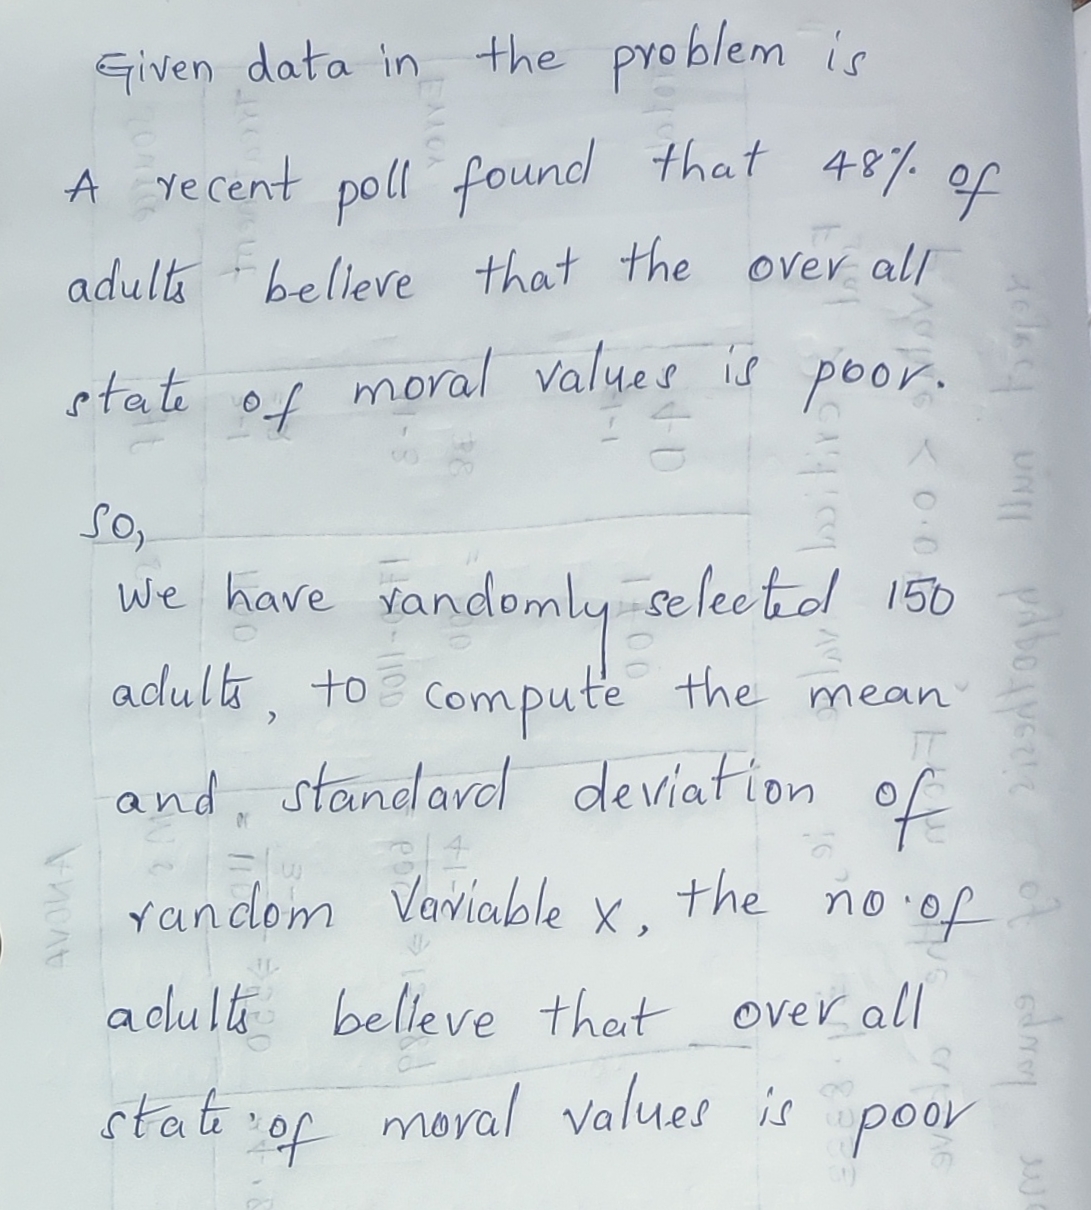 Given data in the problem is
A recent poll found that 48% of
adults believe that the over all
state of moral values is poor.
So,
We have randomly selected 150
adults, to compute the mean
and standard deviation of
random Variable x, the no. of
adults believe that over all
state of moral values is poor